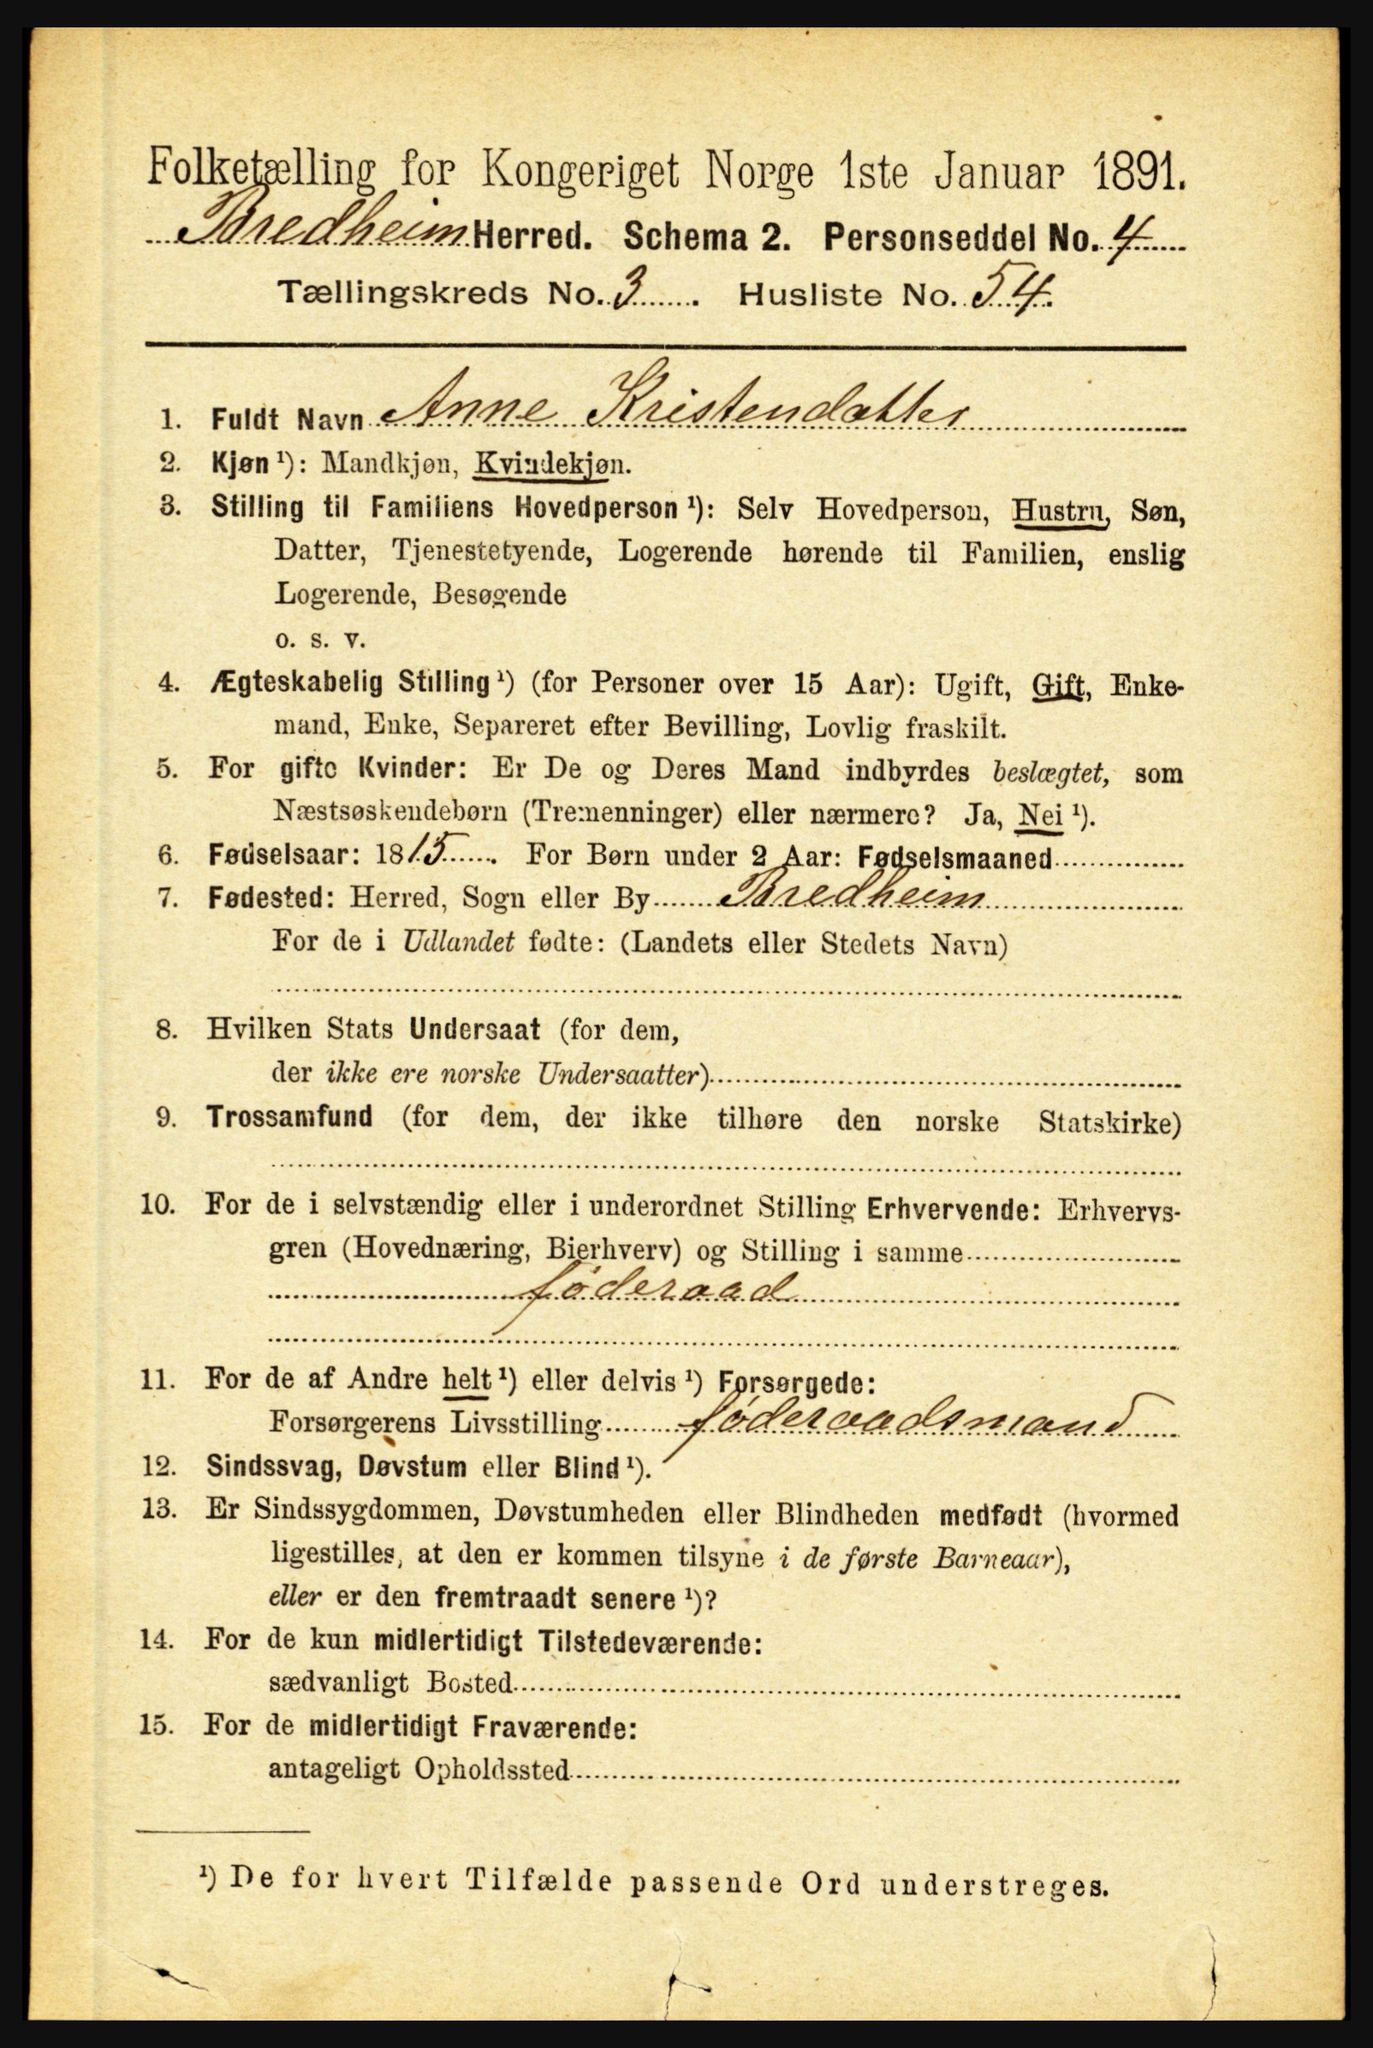 Folketælling for Kongeriget Norge 1ste Januar 1891.
Bredheim Herred. Schema 2. Personseddel No. 4
Tællingskreds No. 3. Husliste No. 54.
1. Fuldt Navn Anne Kristendatter
2. Kjøn ¹): Mandkjøn, Kvindekjøn.
3. Stilling til Familiens Hovedperson ¹): Selv Hovedperson, Hustru, Søn,
Datter, Tjenestetyende, Logerende hørende til Familien, enslig
Logerende, Besøgende
o. s. v.
4. Ægteskabelig Stilling ¹) (for Personer over 15 Aar): Ugift, Gift, Enke-
mand, Enke, Separeret efter Bevilling, Lovlig fraskilt.
5. For gifte Kvinder: Er De og Deres Mand indbyrdes beslægtet, som
Næstsøskendebørn (Tremenninger) eller nærmere? Ja, Nei ¹).
6. Fødselsaar: 1815. For Børn under 2 Aar: Fødselsmaaned
7. Fødested: Herred, Sogn eller By Bredheim
For de i Udlandet fødte: (Landets eller Stedets Navn)
8. Hvilken Stats Undersaat (for dem,
der ikke ere norske Undersaatter)
9. Trossamfund (for dem, der ikke tilhøre den norske Statskirke)
10. For de i selvstændig eller i underordnet Stilling Erhvervende: Erhvervs-
gren (Hovednæring, Bierhverv) og Stilling i samme
føderaad
11. For de af Andre helt ¹) eller delvis ¹) Forsørgede:
Forsørgerens Livsstilling føderaadsmand
12. Sindssvag, Døvstum eller Blind ¹).
13. Er Sindssygdommen, Døvstumheden eller Blindheden medfødt (hvormed
ligestilles, at den er kommen tilsyne i de første Barneaar),
eller er den fremtraadt senere ¹)?
14. For de kun midlertidigt Tilstedeværende:
sædvanligt Bosted
15. For de midlertidigt Fraværende:
antageligt Opholdssted
¹) De for hvert Tilfælde passende Ord understreges.